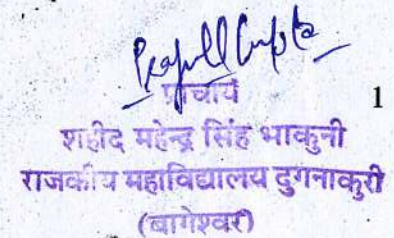 Prapull Gupta
प्राचार्य
1
शहीद महेन्द्र सिंह भाकुनी
राजकीय महाविद्यालय दुगनाकुरी
(बागेश्वर)